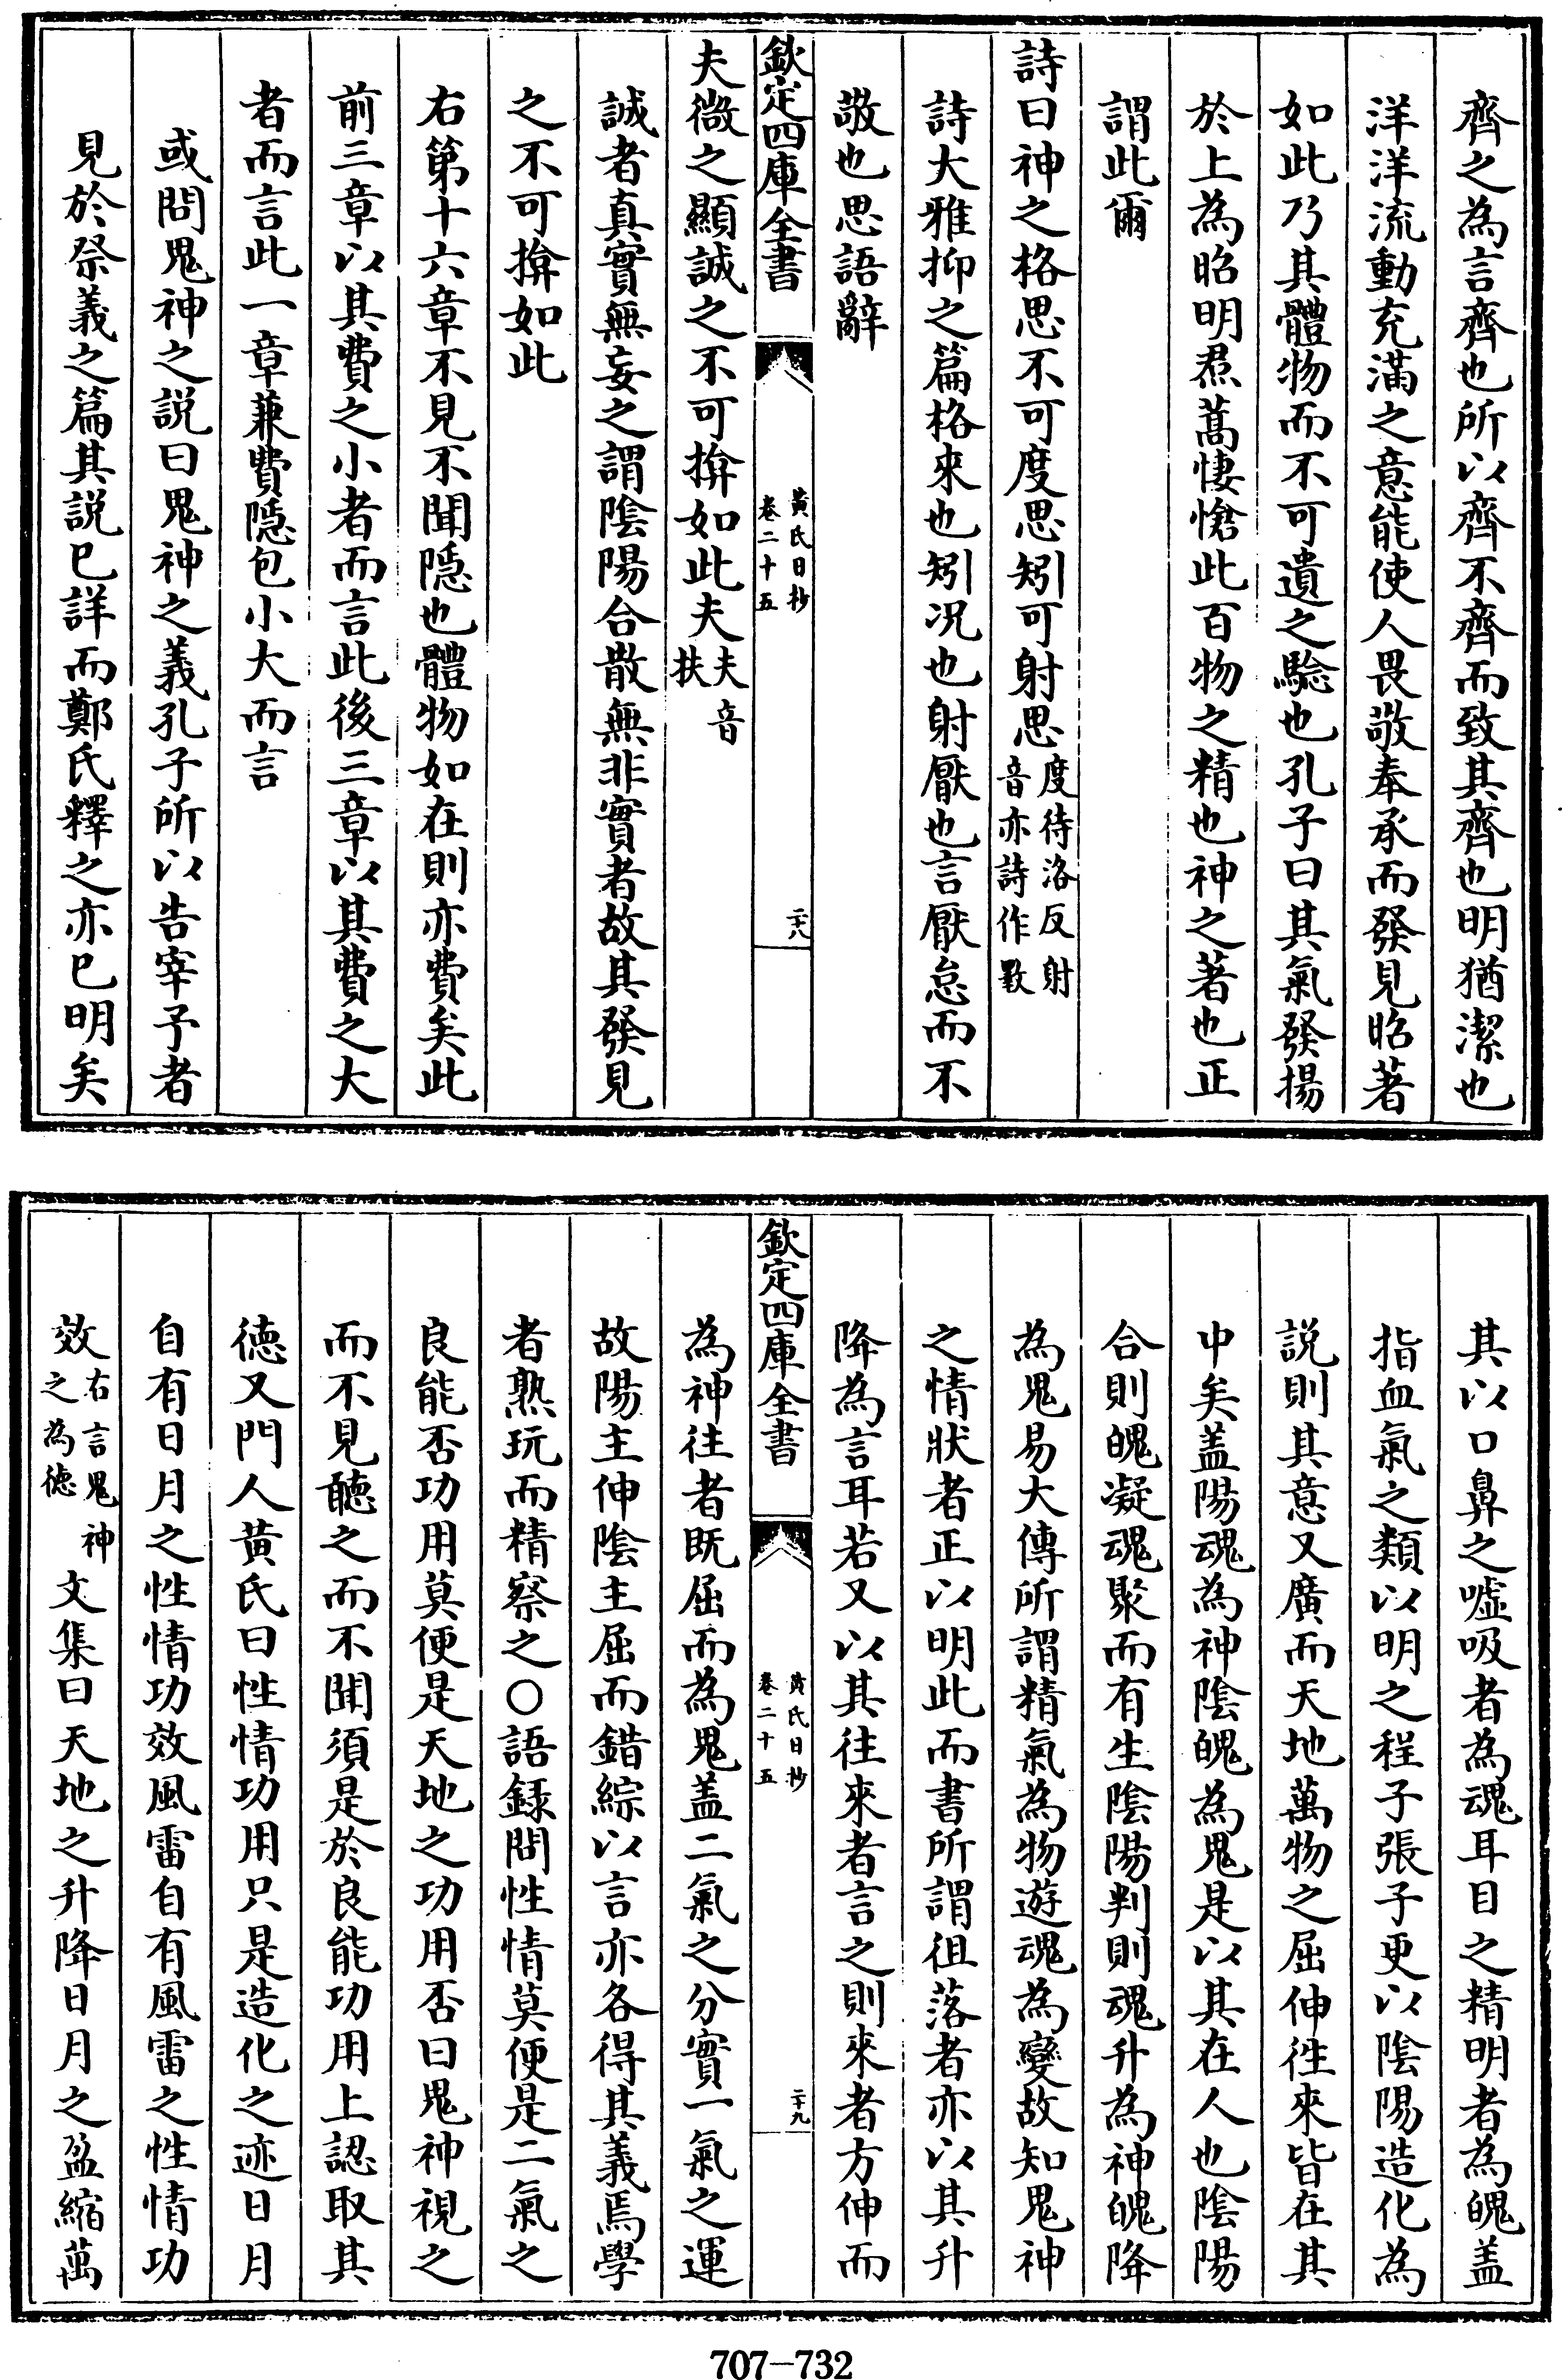 齊之為言齊也所以齊不齊而致其齊也明猶潔也
洋洋流動充滿之意能使人畏敬奉承而發見昭著
如此乃其體物而不可遺之驗也孔子曰其氣發揚
於上為昭明焄蒿悽愴此百物之精也神之著也正
謂此爾
詩曰神之格思不可度思矧可射思度待洛反射音亦詩作斁
詩大雅抑之篇格來也矧况也射厭也言厭怠而不
敬也思語辭
欽定四庫全書 黃氏日抄 卷二十五 二十八
夫微之顯誠之不可揜如此夫夫音扶
誠者真實無妄之謂陰陽合散無非實者故其發見
之不可揜如此
右第十六章不見不聞隱也體物如在則亦費矣此
前三章以其費之小者而言此後三章以其費之大
者而言此一章兼費隱包小大而言
或問鬼神之説曰鬼神之義孔子所以告宰予者
見於祭義之篇其説已詳而鄭氏釋之亦已明矣
其以口鼻之噓吸者為魂耳目之精明者為魄盖
指血氣之類以明之程子張子更以陰陽造化為
説則其意又廣而天地萬物之屈伸徃來皆在其
中矣盖陽魂為神陰魄為鬼是以其在人也陰陽
合則魄凝魂聚而有生陰陽判則魂升為神魄降
為鬼易大傳所謂精氣為物遊魂為變故知鬼神
之情狀者正以明此而書所謂徂落者亦以其升
降為言耳若又以其徃來者言之則來者方伸而
欽定四庫全書 黃氏日抄 卷二十五 二十九
為神徃者既屈而為鬼盖二氣之分實一氣之運
故陽主伸陰主屈而錯綜以言亦各得其義焉學
者熟玩而精察之○語録問性情莫便是二氣之
良能否功用莫便是天地之功用否曰鬼神視之
而不見聽之而不聞須是於良能功用上認取其
德又門人黃氏曰性情功用只是造化之迹日月
自有日月之性情功效風雷自有風雷之性情功
效右言鬼神之為德 文集曰天地之升降日月之盈縮萬
707—732